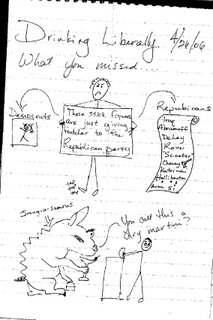 Drinking Liberally 4/26/06
What you missed
Democrats
These stick figures
are just giving
fodder to the
Republican party
Republicans
Iraq
Abramoff
DeLay
Rove
"Scooter"
Cheney
Katrina
Halliburton
"You call this a
dry martini?